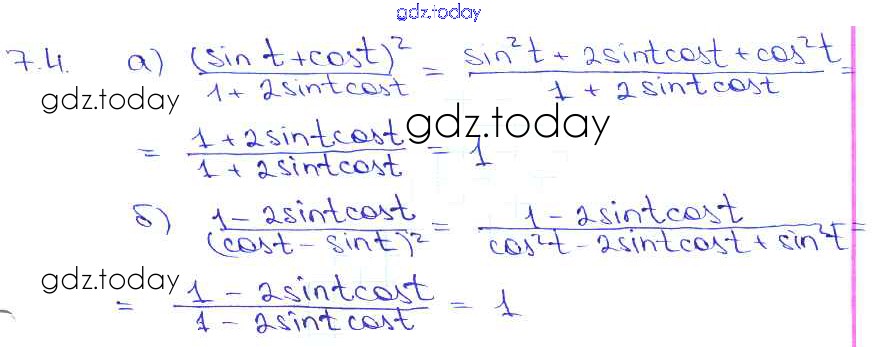 gdz.today
7.4. а) (sin t + cost)² / 1 + 2sintcost = sin²t + 2sintcost + cos²t / 1 + 2sintcost =
gdz.today
= 1 + 2sintcost / 1 + 2sintcost = 1
gdz.today
б) 1 - 2sintcost / (cost - sint)² = 1 - 2sintcost / cos²t - 2sintcost + sin²t =
gdz.today
= 1 - 2sintcost / 1 - 2sintcost = 1